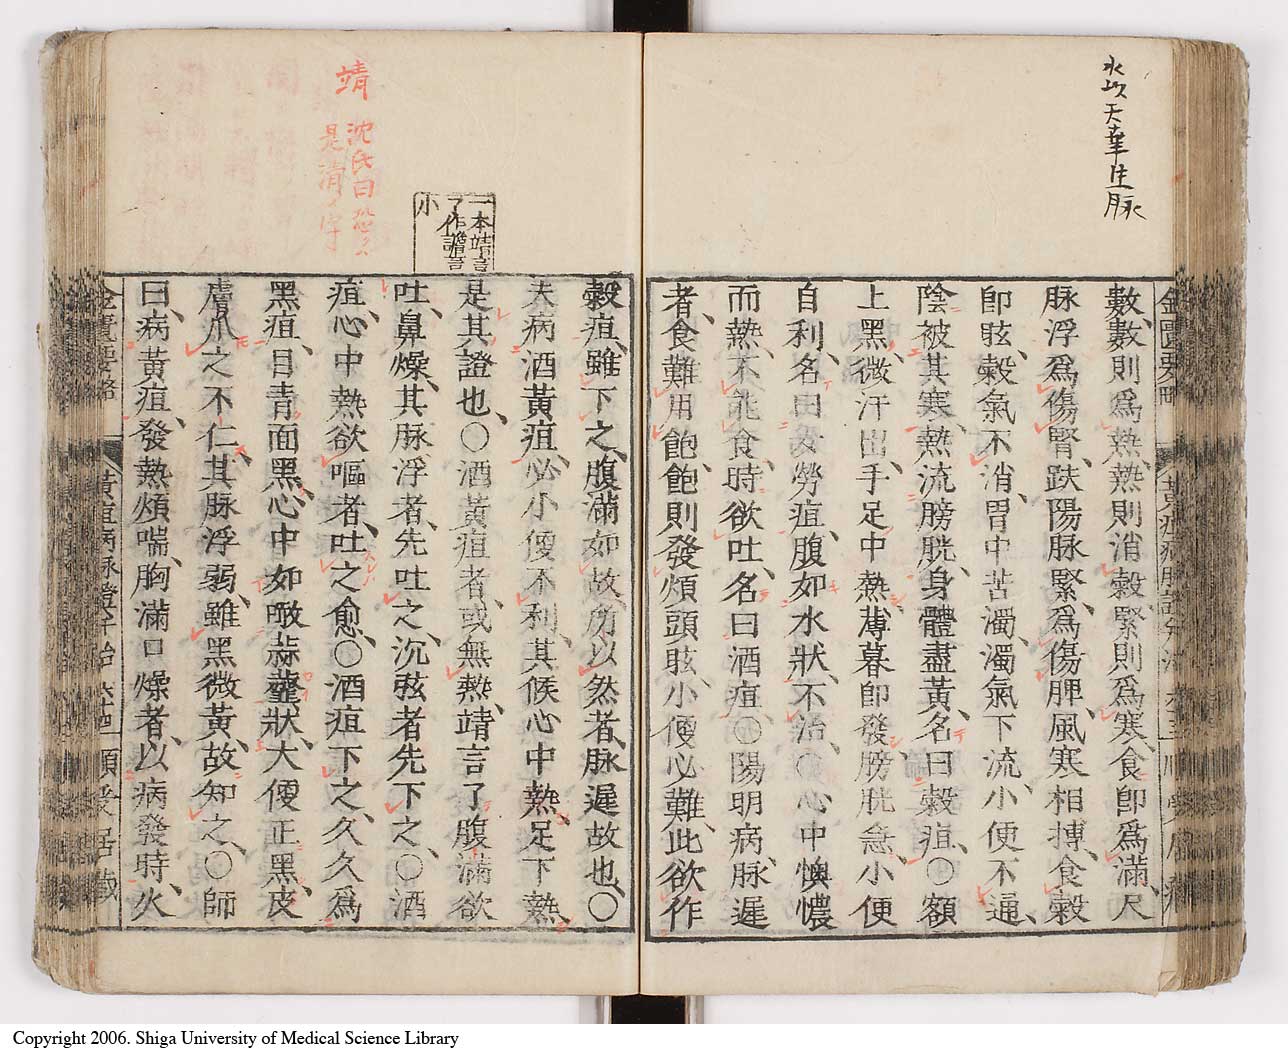 金匱要略
黃疸病脉證
數數則爲熱熱則消穀緊則爲寒食卽爲滿尺
脉浮爲傷腎趺陽脉緊爲傷脾風寒相搏食穀
卽眩穀氣不消胃中苦濁濁氣下流小便不通
陰被其寒熱流膀胱身體盡黃名曰穀疸○額
上黑微汗出手足中熱薄暮卽發膀胱急小便
自利名曰女勞疸腹如水狀不治○心中懊憹
而熱不能食時欲吐名曰酒疸○陽明病脉遲
者食難用飽飽則發煩頭眩小便必難此欲作
一本靖言
了作譫言
小
靖
沈氏曰恐ハ
是清ノ字
穀疸雖下之腹滿如故所以然者脉遲故也○
夫病酒黃疸必小便不利其候心中熱足下熱
是其證也○酒黃疸者或無熱靖言了腹滿欲
吐鼻燥其脉浮者先吐之沉弦者先下之○酒
疸心中熱欲嘔者吐之愈○酒疸下之久久爲
黑疸目青面黑心中如噉蒜虀狀大便正黑皮
膚爪之不仁其脉浮弱雖黑微黃故知之○師
曰病黃疸發熱煩喘胸滿口燥者以病發時火
金匱要略
黃疸病脉證并治
Copyright 2006. Shiga University of Medical Science Library